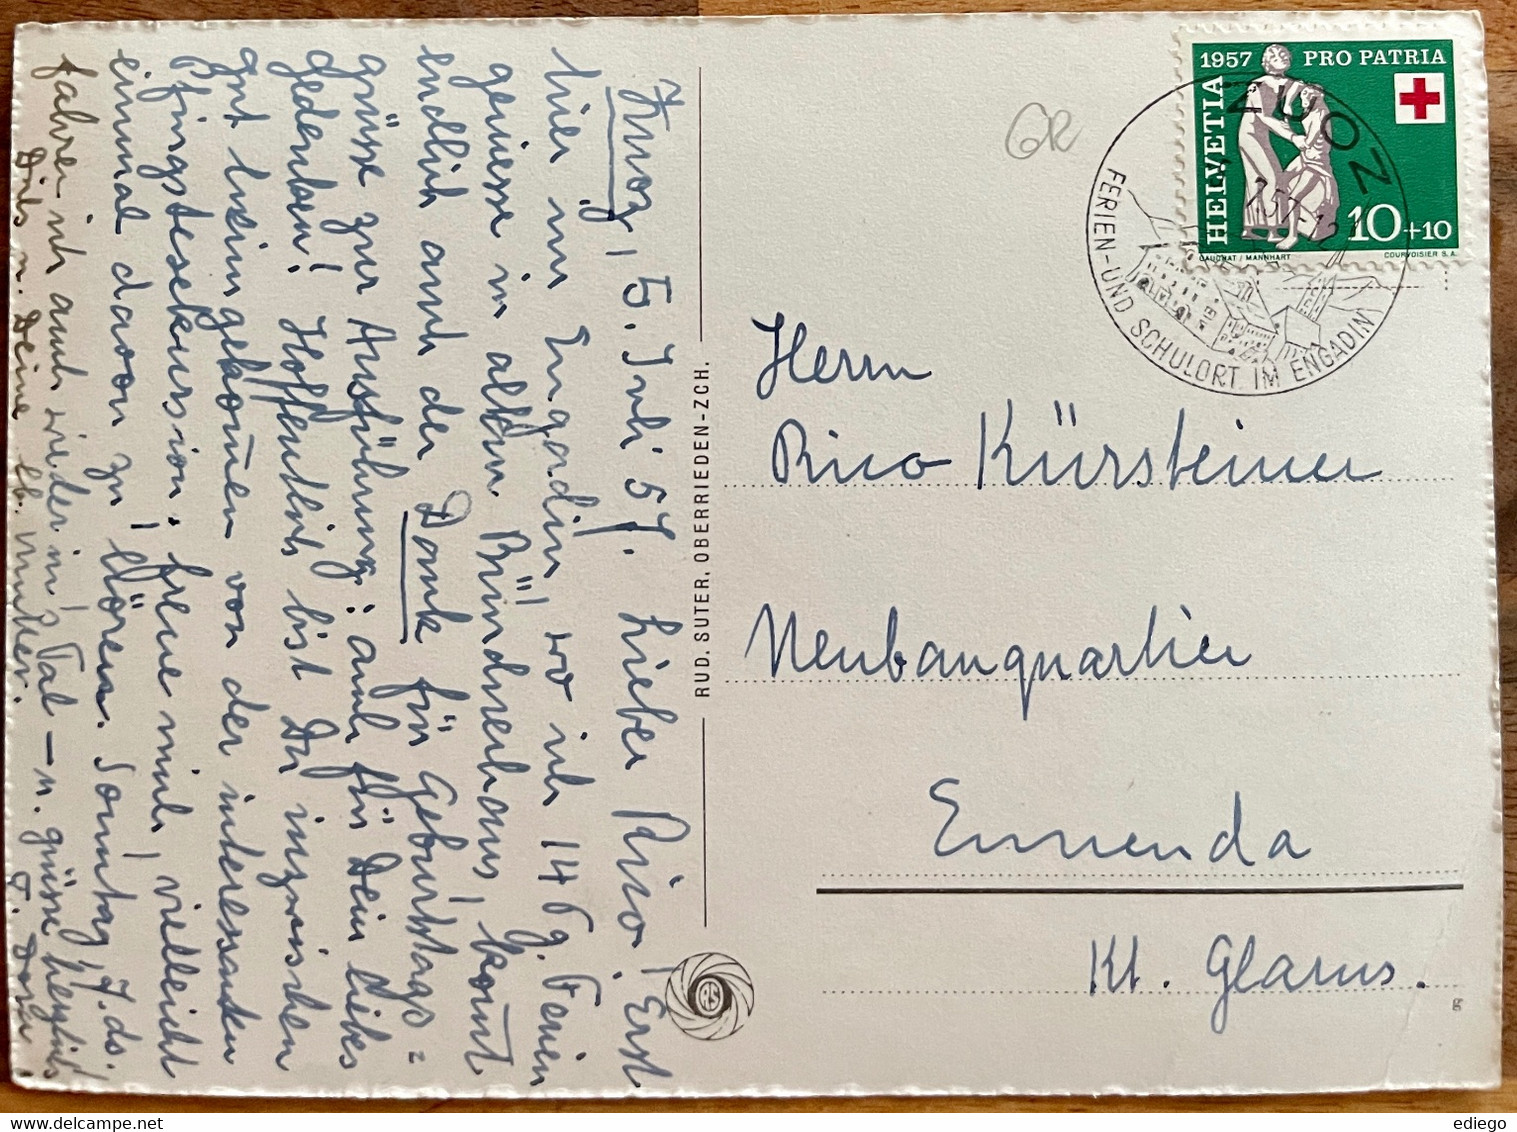 Zuoz, 5. Juli 57. Lieber Rico! Erst
hier im Engadin, wo ich 14 Tg. Ferien
geniesse im alten Bündnerhaus, kommt
endlich auch der Dank für Geburtstags=
grüsse zur Ausführung: auch für Dein liebes
Gedenken! Hoffentlich bist Du inzwischen
gut heimgekommen von der interessanten
Pfingstexkursion. freue mich, vielleicht
einmal davon zu hören. Sonntag, 7. ds.
fahren ich auch wieder in's Tal – u. grüsse herzlich
Dich u. Deine lb. Mutter.
T. Dora
RUD. SUTER, OBERRIEDEN-ZCH.
RS
GR
1957 PRO PATRIA
HELVETIA
10+10
GAUCHAT / MANNHART
COURVOISIER S.A.
ZUOZ
7.57-12
FERIEN-UND SCHULORT IM ENGADIN
Herrn
Rico Kürsteiner
Neubauquartier
Ennenda
Kt. Glarus.
g
ediego